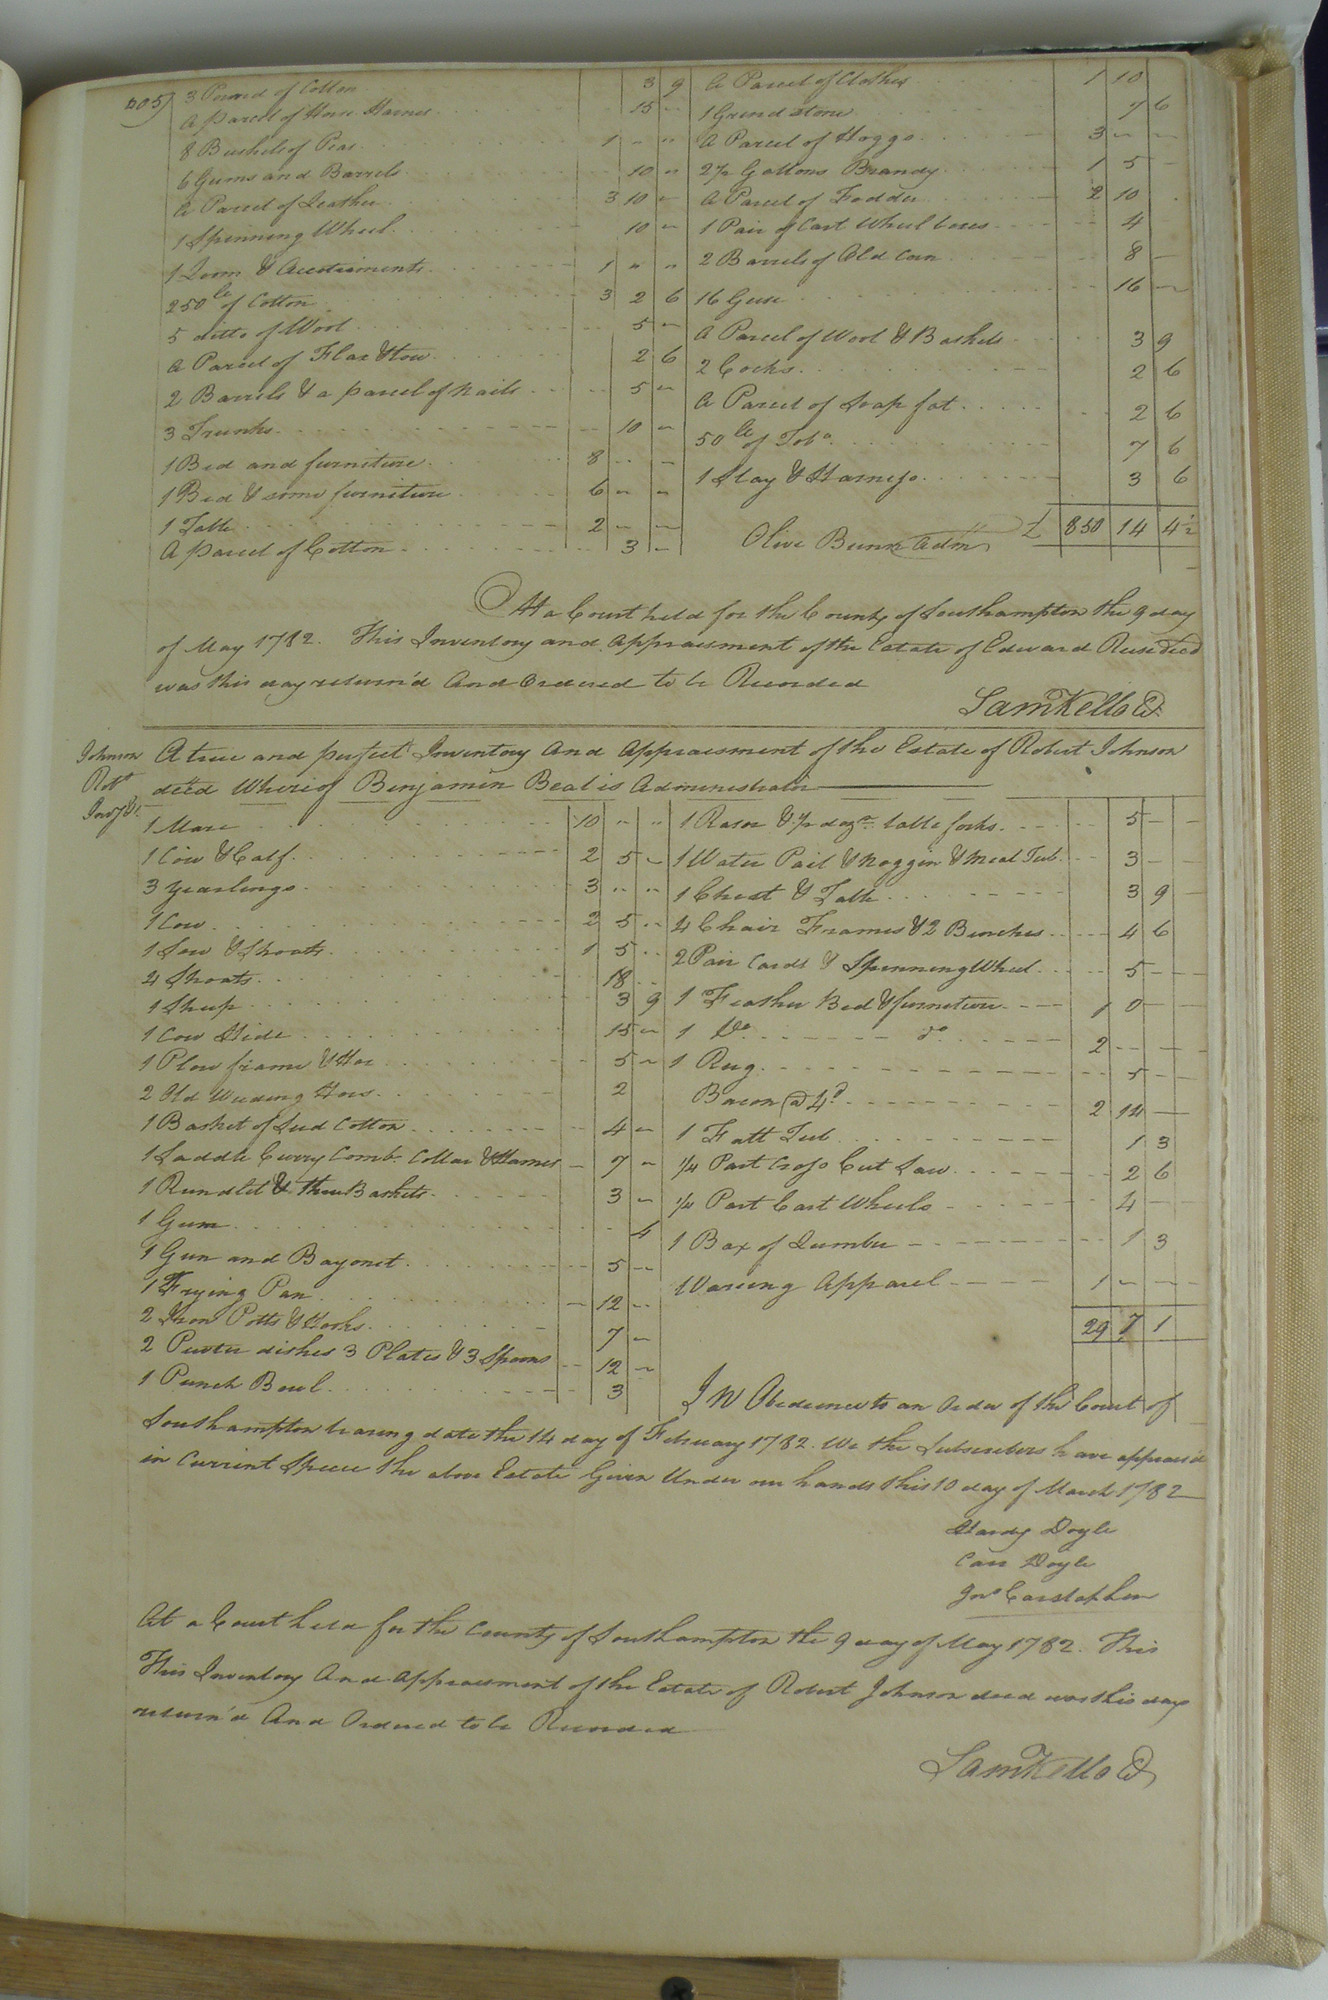 205)
3 Pound of Cotton 3 9
A parcel of Horse Harnes 15 "
8 Bushels of Peas 1 " "
6 Gums and Barrels 10 "
A Parcel of Leather 3 10 "
1 Spinning Wheel 10 "
1 Loom & Accutriments 1 " "
250 lb of Cotton 3 2 6
5 ditto of Wool 5 "
A Parcel of Flax & tow 2 6
2 Barrels & a parcel of nails 5 "
3 Trunks 10 "
1 Bed and furniture 8 " "
1 Bed & some furniture 6 " "
1 Table 2 " "
A parcel of Cotton 3 "
A Parcel of Clothes 1 10
1 Grindstone 7 6
A Parcel of Hoggs 3 " "
2½ Gallons Brandy 1 5
A Parcel of Fodder 2 10
1 Pair of Cart Wheel boxes 4
2 Barrels of Old Corn 8
16 Geese 16
A Parcel of Wool & Baskets 3 9
2 Cocks 2 6
A Parcel of Soap fat 2 6
50 lb of Tobo 7 6
1 Slay & Harness 3 6
£ 850 14 4½
Olive Bunn Adm
At a Court held for the County of Southampton the 9 day
of May 1782. This Inventory and Appraesment of the Estate of Edward Reese Decd
was this day return'd And Ordered to be Recorded
Sam Kello Ct
Johnson
Robt
Invy &c
A true and perfect Inventory And Appraesment of the Estate of Robert Johnson
decd Whereof Benjamin Beal is Administrator
1 Mare 10 " "
1 Cow & Calf 2 5 "
3 Yearlings 3 " "
1 Cow 2 5 "
1 Sow & Shoats 1 5 "
4 Shoats 18
1 Sheep 3 9
1 Cow Hide 15 "
1 Plow frame & Hoe 5 "
2 Old Weeding Hoes 2
1 Basket of Seed Cotton 4 "
1 Saddle Curry Comb Collar & Hames 7 "
1 Rundlet & three Baskets 3 "
1 Gum 4
1 Gun and Bayonet 5 "
1 Frying Pan 12 "
2 Iron Potts & Hooks 7 "
2 Pewter dishes 3 Plates & 3 Spoons 12 "
1 Punch Bowl 3
1 Rasor & ½ dozn table forks 5
1 Water Pail & Noggin & Meal Tub 3
1 Chest & Table 3 9
4 Chair Frames & 2 Benches 4 6
2 Pair Cards & Spinning Wheel 5
1 Feather Bed & furniture 1 0
1 Do do 2
1 Rug 5
Bacon @ 4d 2 14
1 Fatt Tub 1 3
¼ Part Cross Cut Saw 2 6
¼ Part Cart Wheels 4
1 Box of Lumber 1 3
Wareing Apparel 1
29 7 1
In Obedience to an Order of the Court of
Southampton bearing date the 14 day of February 1782. We the Subscribers have appraesd
in Current Specie the above Estate Given Under our hands this 10 day of March 1782
Hardy Doyle
Carr Doyle
Jno Carstaphen
At a Court held for the County of Southampton the 9 day of May 1782. This
This Inventory And Appraesment of the Estate of Robert Johnson decd was this day
return'd And Ordered to be Recorded
Sam Kello Ct